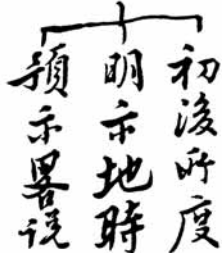 初後所度
明示地時
預示畧说